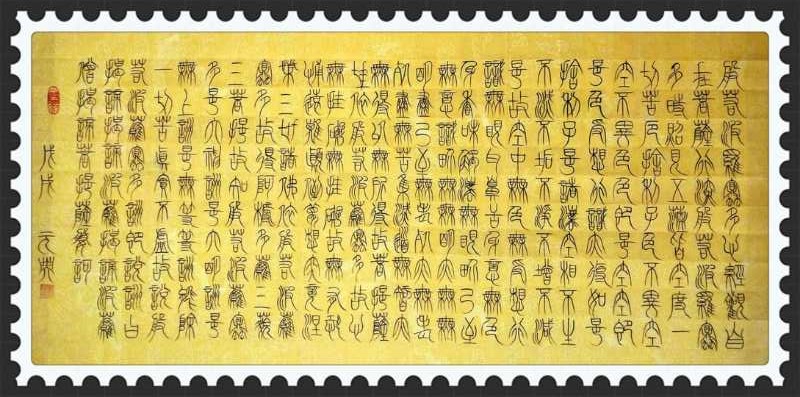 般若波羅蜜多心經觀自
在菩薩行深般若波羅蜜
多時照見五蘊皆空度一
切苦厄捨利子色不異空
空不異色色即是空空即
是色受想行識亦復如是
捨利子是諸法空相不生
不滅不垢不淨不增不減
是故空中無色無受想行
識無眼耳鼻舌身意無色
聲香味觸法無眼界乃至
無意識界無無明亦無無
明盡乃至無老死亦無老
死盡無苦集滅道無智亦
無得以無所得故菩提薩
埵依般若波羅蜜多故心
無罣礙無罣礙故無有恐
怖遠離顛倒夢想究竟涅
槃三世諸佛依般若波羅
蜜多故得阿耨多羅三藐
三菩提故知般若波羅蜜
多是大神咒是大明咒是
無上咒是無等等咒能除
一切苦真實不虛故說般
若波羅蜜多咒即說咒曰
揭諦揭諦波羅揭諦波羅
僧揭諦菩提薩婆訶
戊戌 元